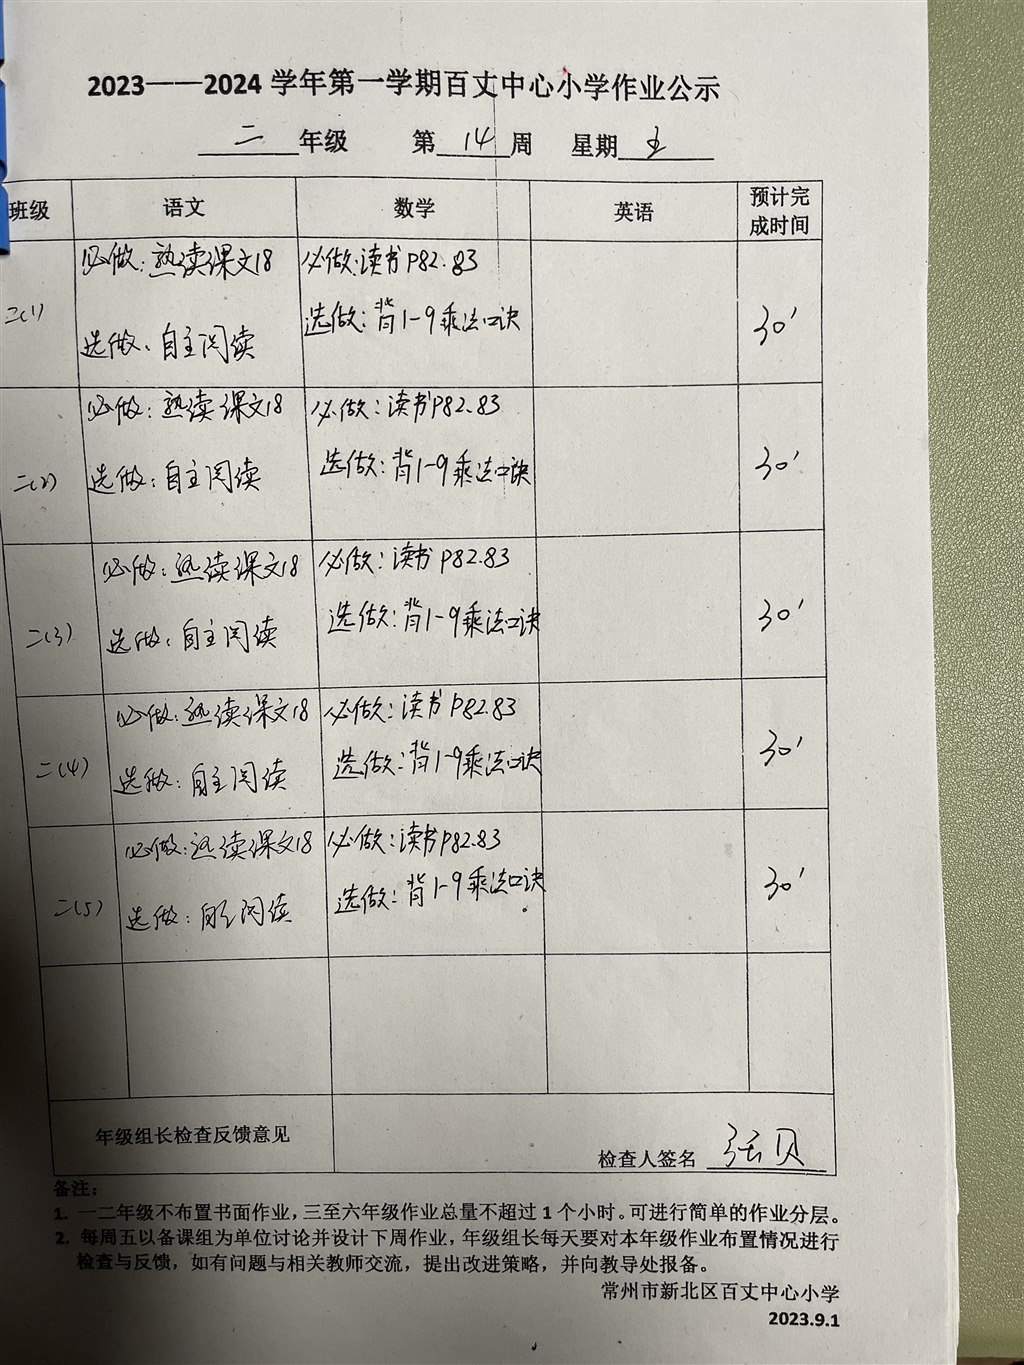 2023——2024 学年第一学期百丈中心小学作业公示
二 年级 第 14 周 星期 五
班级 语文 数学 英语 预计完成时间
二(1) 必做:熟读课文18 必做:读书P82.83 30'
选做:自主阅读 选做:背1-9乘法口诀
二(2) 必做:熟读课文18 必做:读书P82.83 30'
选做:自主阅读 选做:背1-9乘法口诀
二(3) 必做:熟读课文18 必做:读书P82.83 30'
选做:自主阅读 选做:背1-9乘法口诀
二(4) 必做:熟读课文18 必做:读书P82.83 30'
选做:自主阅读 选做:背1-9乘法口诀
二(5) 必做:熟读课文18 必做:读书P82.83 30'
选做:自主阅读 选做:背1-9乘法口诀
年级组长检查反馈意见 检查人签名 张贝
备注:
1. 一二年级不布置书面作业,三至六年级作业总量不超过 1 个小时。可进行简单的作业分层。
2. 每周五以备课组为单位讨论并设计下周作业,年级组长每天要对本年级作业布置情况进行
检查与反馈,如有问题与相关教师交流,提出改进策略,并向教导处报备。
常州市新北区百丈中心小学
2023.9.1